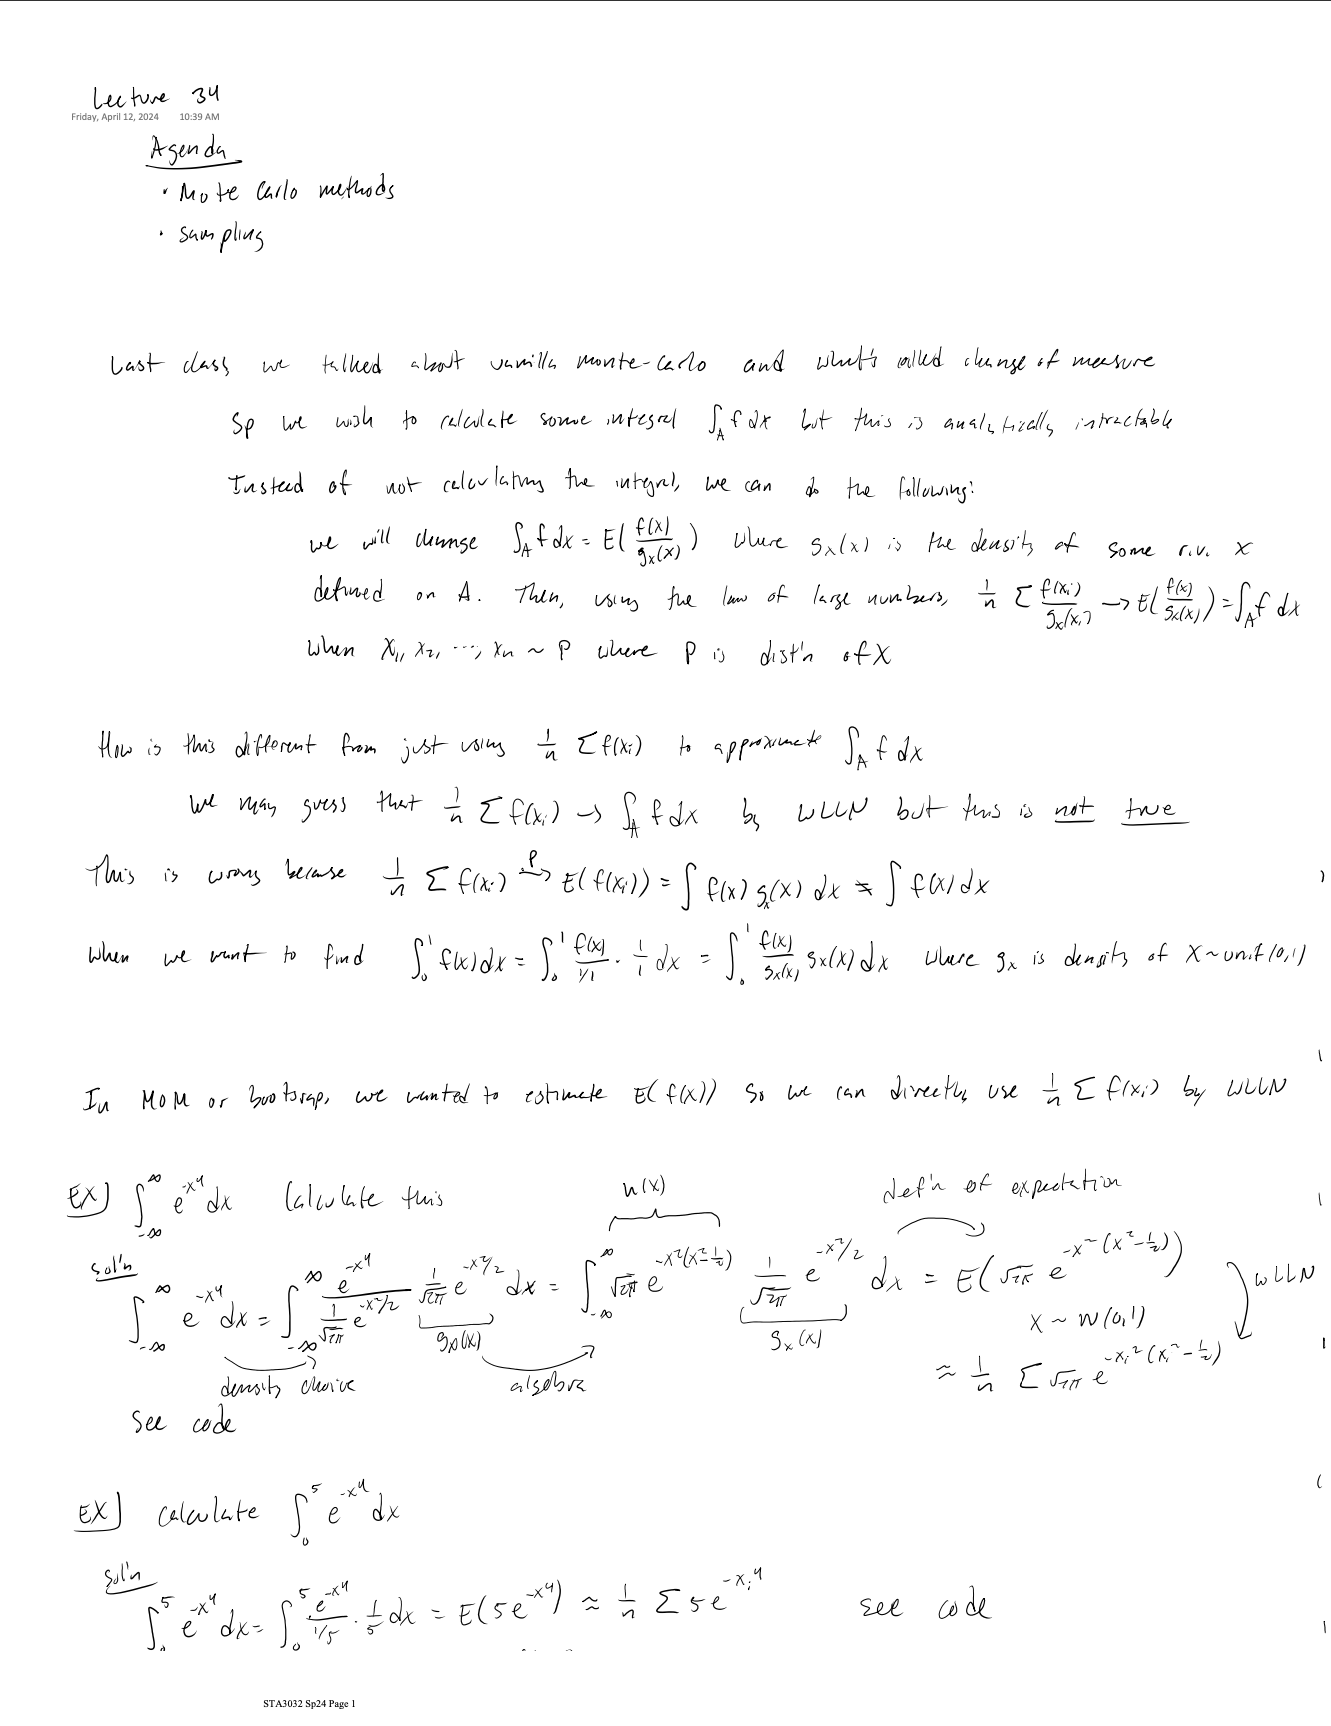 Lecture 34
Friday, April 12, 2024 10:39 AM
Agenda
• Mote Carlo methods
• Sampling
Last class we talked about vanilla monte-carlo and what's called change of measure
Sp we wish to calculate some integral ∫_A f dx but this is analytically intractable
Instead of not calculating the integral, we can do the following:
we will change ∫_A f dx = E( f(x)/g_X(x) ) where g_X(x) is the density of some r.v. X
defined on A. Then, using the law of large numbers, 1/n Σ f(x_i)/g_X(x_i) → E( f(x)/g_X(x) ) = ∫_A f dx
when X_1, X_2, ..., X_n ~ P where P is dist'n of X
How is this different from just using 1/n Σ f(x_i) to approximate ∫_A f dx
We may guess that 1/n Σ f(x_i) → ∫_A f dx by WLLN but this is not true
This is wrong because 1/n Σ f(x_i) →^P E(f(x_i)) = ∫ f(x) g_X(x) dx ≠ ∫ f(x) dx
When we want to find ∫_0^1 f(x) dx = ∫_0^1 f(x)/(1/1) · 1/1 dx = ∫_0^1 f(x)/g_X(x) g_X(x) dx where g_X is density of X ~ unif(0,1)
In MOM or bootsrap, we wanted to estimate E(f(x)) so we can directly use 1/n Σ f(x_i) by WLLN
EX) ∫_{-∞}^{∞} e^{-x^4} dx Calculate this
h(x)
def'n of expectation
sol'n
∫_{-∞}^{∞} e^{-x^4} dx = ∫_{-∞}^{∞} e^{-x^4} / (1/√2π e^{-x^2/2}) 1/√2π e^{-x^2/2} dx = ∫_{-∞}^{∞} √2π e^{-x^2(x^2-1/2)} 1/√2π e^{-x^2/2} dx = E( √2π e^{-x^2(x^2-1/2)} )
WLLN
g_X(x)
g_X(x)
X ~ N(0,1)
density choice
algebra
≈ 1/n Σ √2π e^{-x_i^2(x_i^2-1/2)}
See code
EX] calculate ∫_0^5 e^{-x^4} dx
sol'n
∫_0^5 e^{-x^4} dx = ∫_0^5 e^{-x^4}/(1/5) · 1/5 dx = E(5e^{-x^4}) ≈ 1/n Σ 5e^{-x_i^4} see code
STA3032 Sp24 Page 1